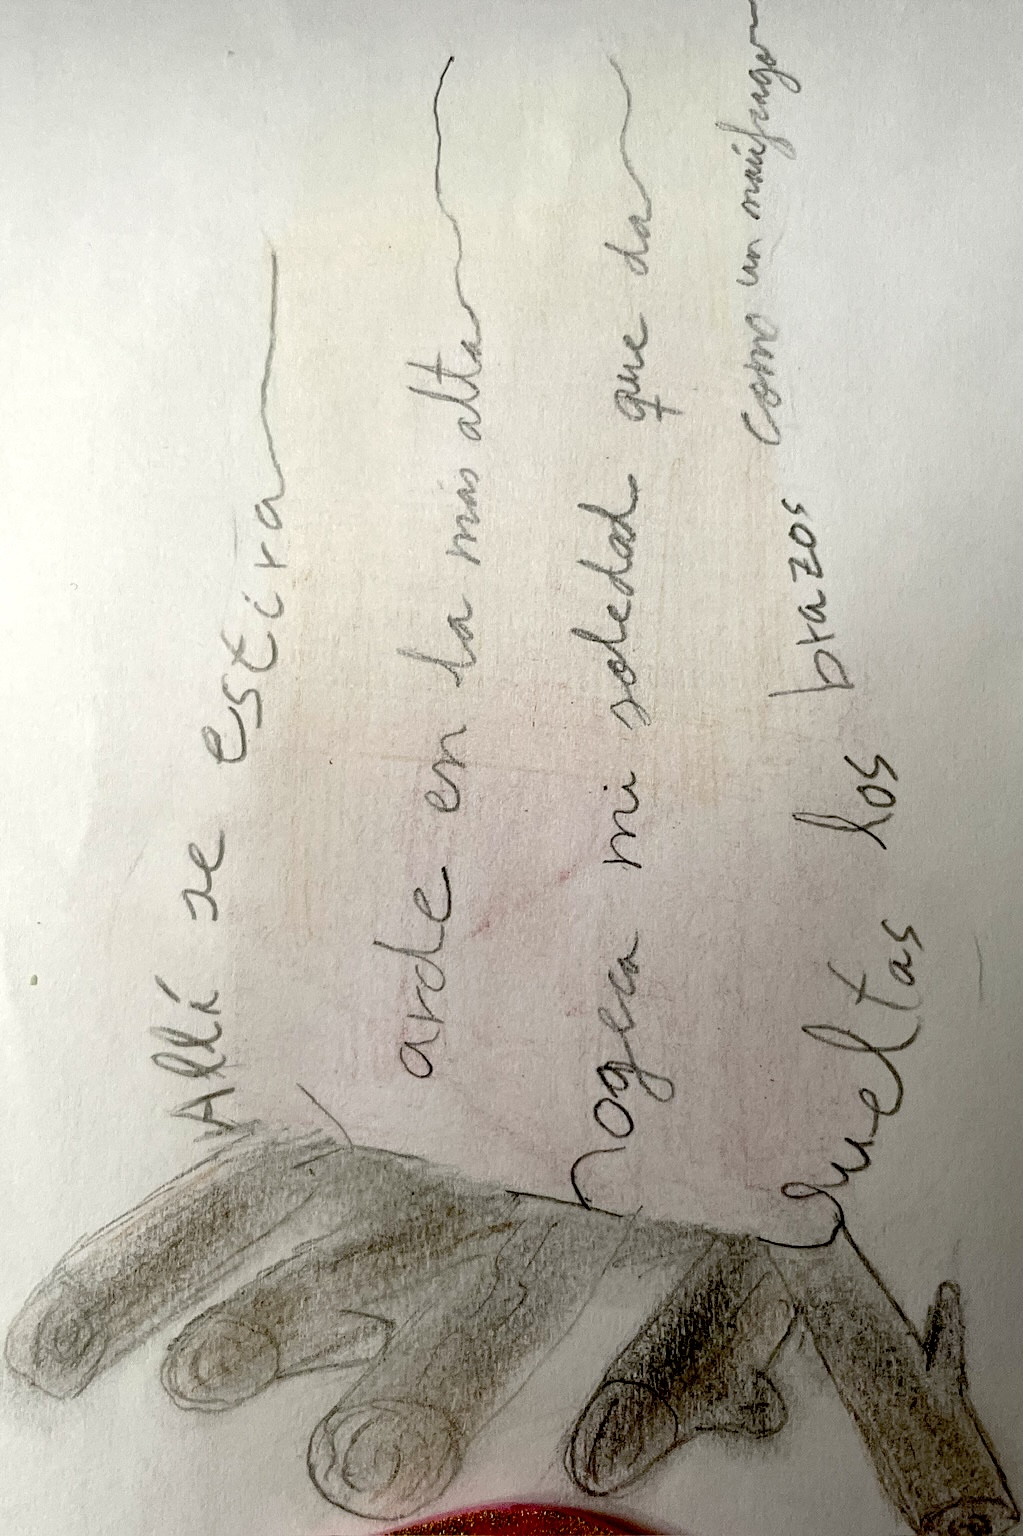 Allí se estira
arde en la más alta
hogera mi soledad que da
vueltas los brazos como un naúfrago